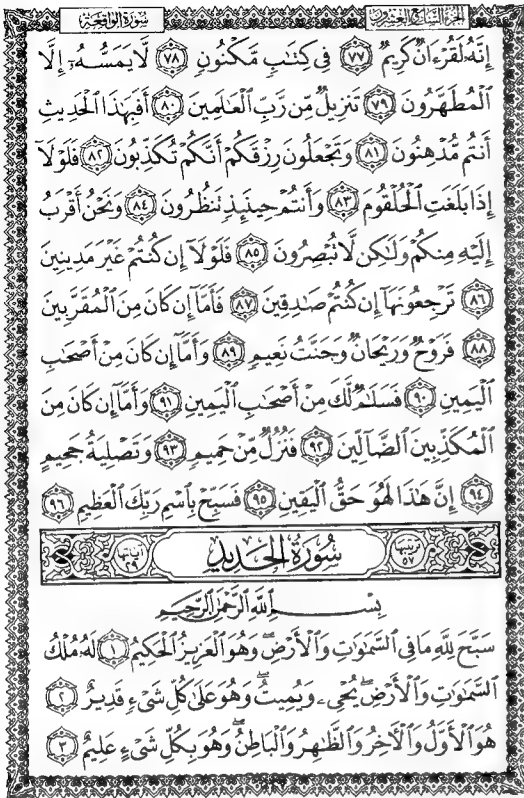 سُورَةُ الوَاقِعَةِ الجُزْءُ السَّابِعُ وَالعِشْرُونَ
إِنَّهُۥ لَقُرْءَانٌ كَرِيمٌ ٧٧ فِى كِتَٰبٍ مَّكْنُونٍ ٧٨ لَّا يَمَسُّهُۥٓ إِلَّا
ٱلْمُطَهَّرُونَ ٧٩ تَنزِيلٌ مِّن رَّبِّ ٱلْعَٰلَمِينَ ٨٠ أَفَبِهَٰذَا ٱلْحَدِيثِ
أَنتُم مُّدْهِنُونَ ٨١ وَتَجْعَلُونَ رِزْقَكُمْ أَنَّكُمْ تُكَذِّبُونَ ٨٢ فَلَوْلَآ
إِذَا بَلَغَتِ ٱلْحُلْقُومَ ٨٣ وَأَنتُمْ حِينَئِذٍ تَنظُرُونَ ٨٤ وَنَحْنُ أَقْرَبُ
إِلَيْهِ مِنكُمْ وَلَٰكِن لَّا تُبْصِرُونَ ٨٥ فَلَوْلَآ إِن كُنتُمْ غَيْرَ مَدِينِينَ
٨٦ تَرْجِعُونَهَآ إِن كُنتُمْ صَٰدِقِينَ ٨٧ فَأَمَّآ إِن كَانَ مِنَ ٱلْمُقَرَّبِينَ
٨٨ فَرَوْحٌ وَرَيْحَانٌ وَجَنَّتُ نَعِيمٍ ٨٩ وَأَمَّآ إِن كَانَ مِنْ أَصْحَٰبِ
ٱلْيَمِينِ ٩٠ فَسَلَٰمٌ لَّكَ مِنْ أَصْحَٰبِ ٱلْيَمِينِ ٩١ وَأَمَّآ إِن كَانَ مِنَ
ٱلْمُكَذِّبِينَ ٱلضَّآلِّينَ ٩٢ فَنُزُلٌ مِّنْ حَمِيمٍ ٩٣ وَتَصْلِيَةُ جَحِيمٍ
٩٤ إِنَّ هَٰذَا لَهُوَ حَقُّ ٱلْيَقِينِ ٩٥ فَسَبِّحْ بِٱسْمِ رَبِّكَ ٱلْعَظِيمِ ٩٦
ترتيبها ٥٧ سُورَةُ الحَدِيدِ آياتها ٢٩
بِسْمِ ٱللَّهِ ٱلرَّحْمَٰنِ ٱلرَّحِيمِ
سَبَّحَ لِلَّهِ مَا فِى ٱلسَّمَٰوَٰتِ وَٱلْأَرْضِ ۖ وَهُوَ ٱلْعَزِيزُ ٱلْحَكِيمُ ١ لَهُۥ مُلْكُ
ٱلسَّمَٰوَٰتِ وَٱلْأَرْضِ ۖ يُحْىِۦ وَيُمِيتُ ۖ وَهُوَ عَلَىٰ كُلِّ شَىْءٍ قَدِيرٌ ٢
هُوَ ٱلْأَوَّلُ وَٱلْءَاخِرُ وَٱلظَّٰهِرُ وَٱلْبَاطِنُ ۖ وَهُوَ بِكُلِّ شَىْءٍ عَلِيمٌ ٣